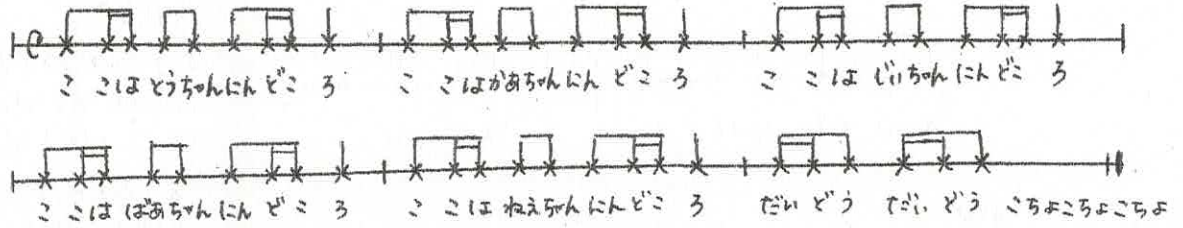 ここはとうちゃんにんどころ ここはかあちゃんにんどころ ここはじいちゃんにんどころ
ここはばあちゃんにんどころ ここはねえちゃんにんどころ だいどう だいどう こちょこちょこちょ